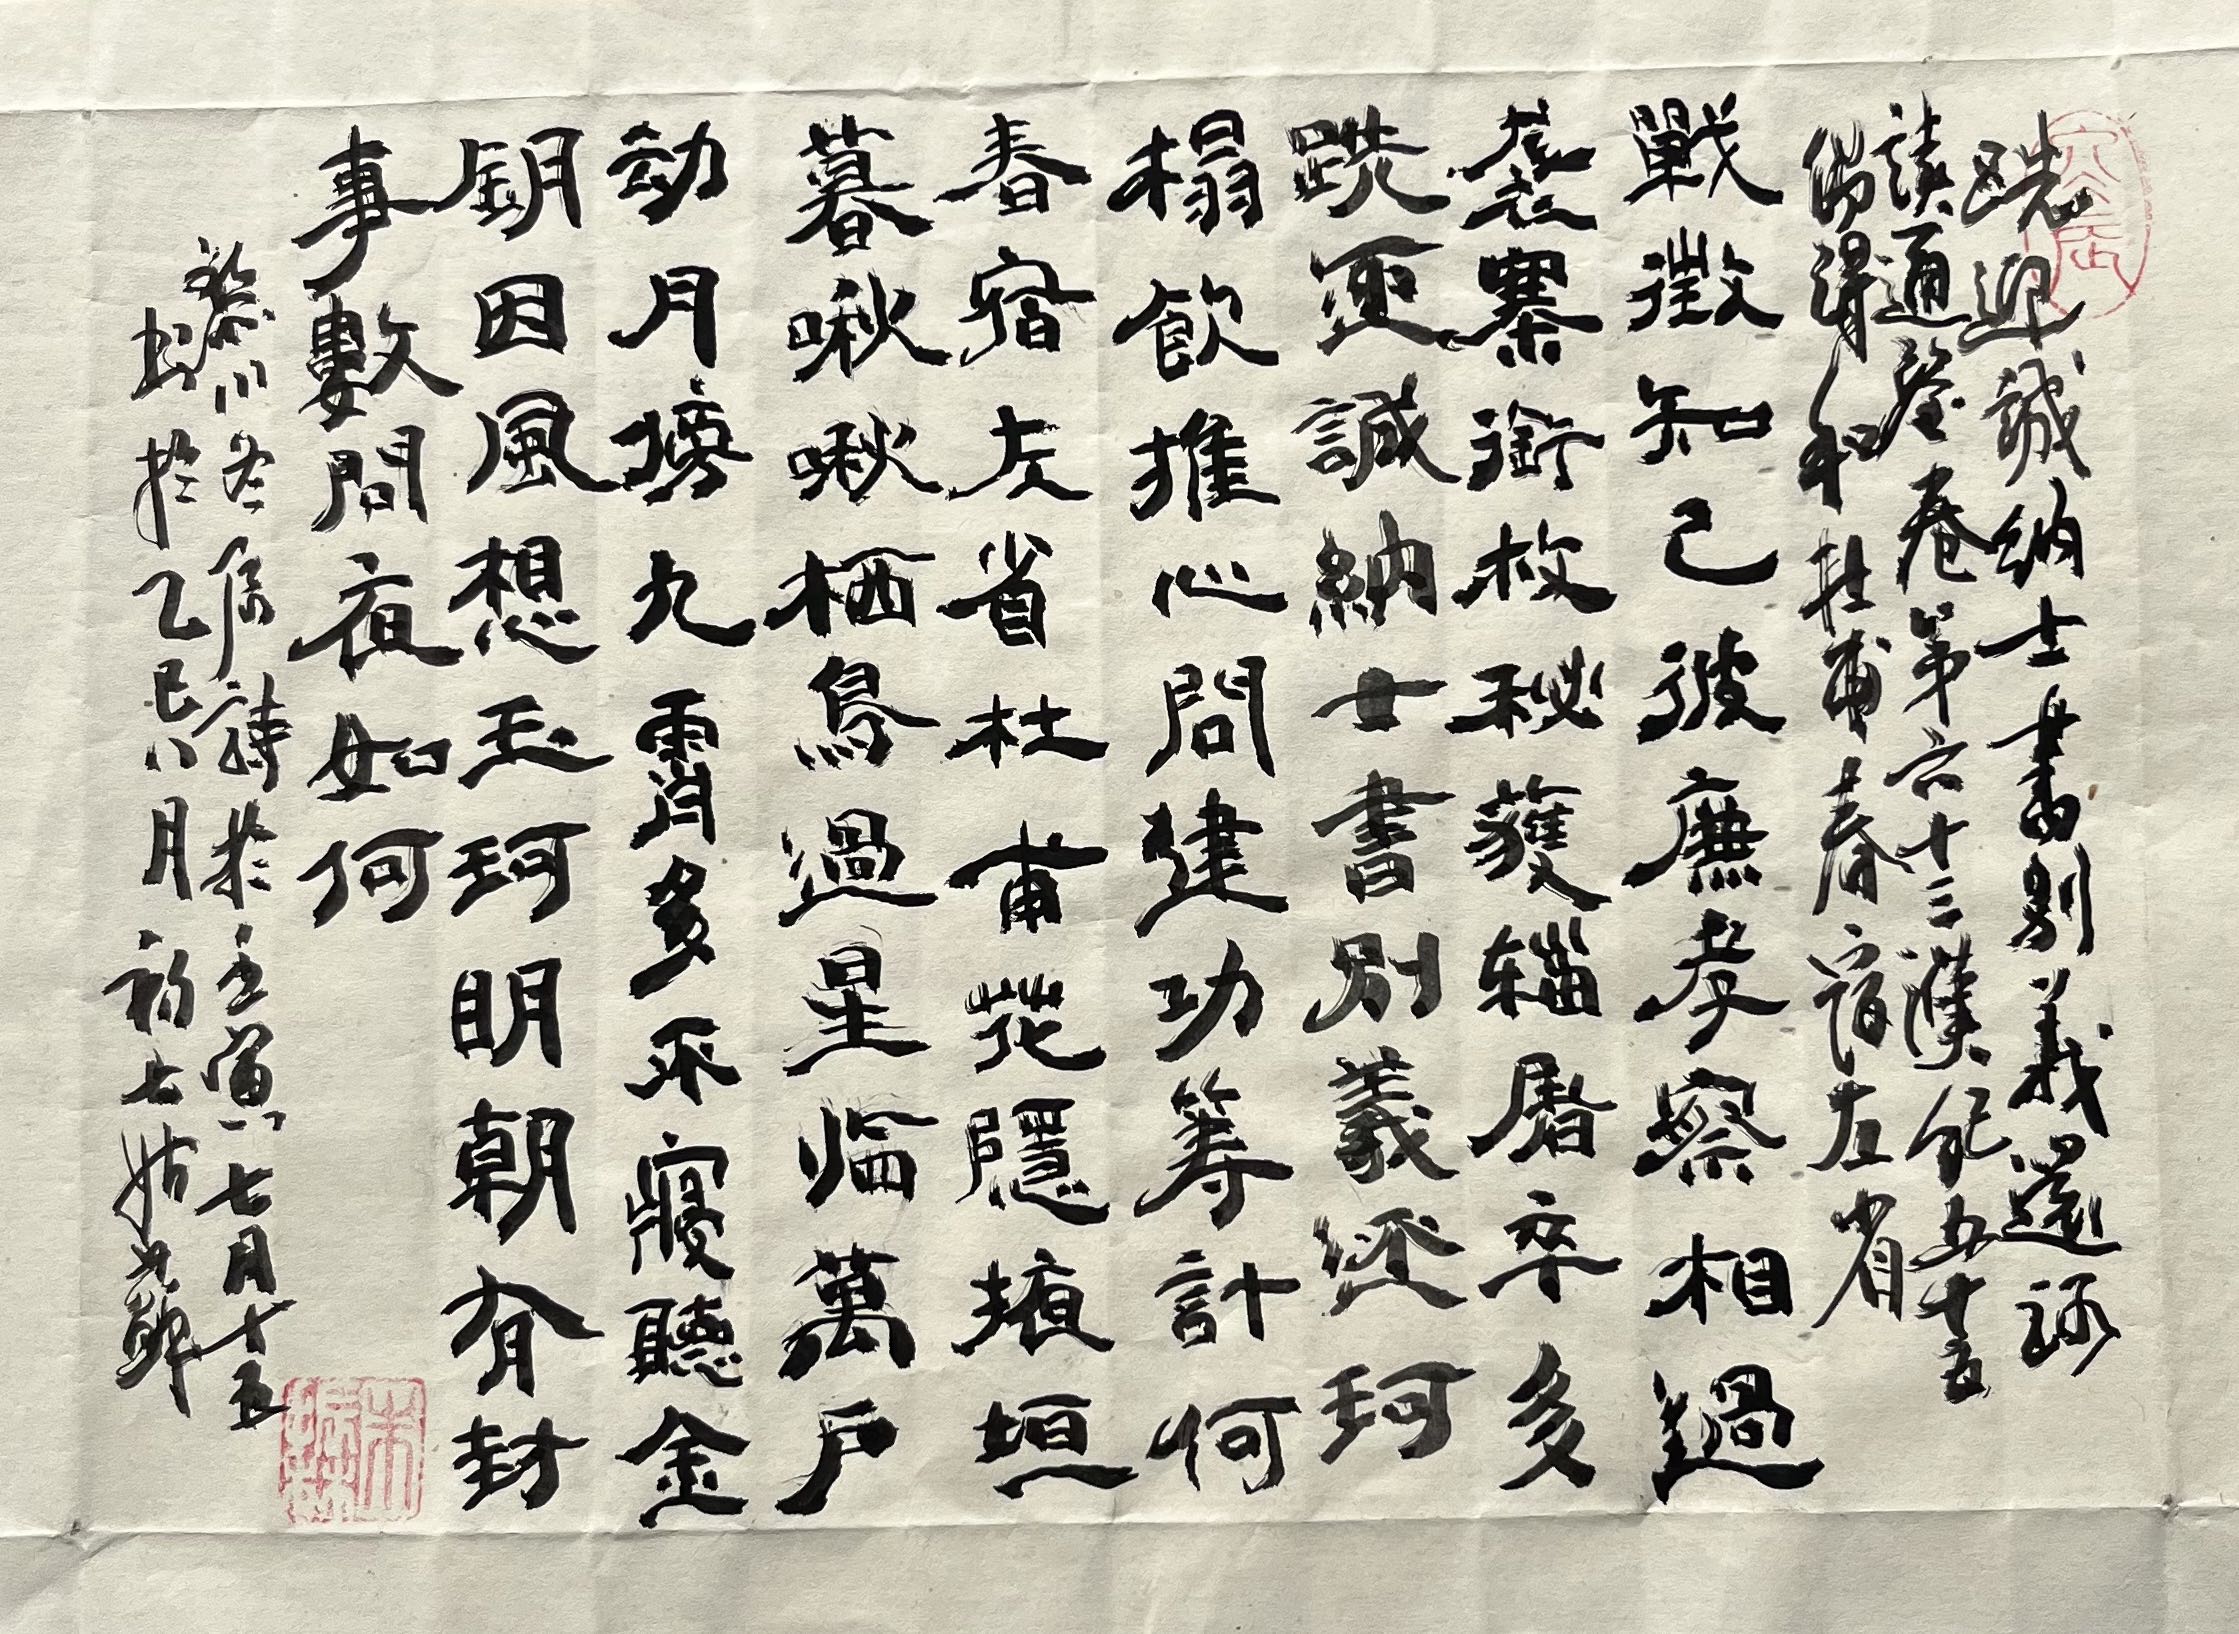 跣迎誠納士書別義還詠
讀通鑒卷第六十三漢紀五十五
偶得和杜甫春宿左省
戰徵知己彼廉孝察相過
襲寨銜枚秘獲輜屠卒多
跣迎誠納士書別義還珂
榻飲推心問建功籌計何
春宿左省杜甫花隱掖垣
暮啾啾栖鳥過星临萬户
動月傍九霄多不寢聽金
鑰因風想玉珂明朝有封
事數問夜如何
詩於壬寅七月十五
書於乙巳八月初七